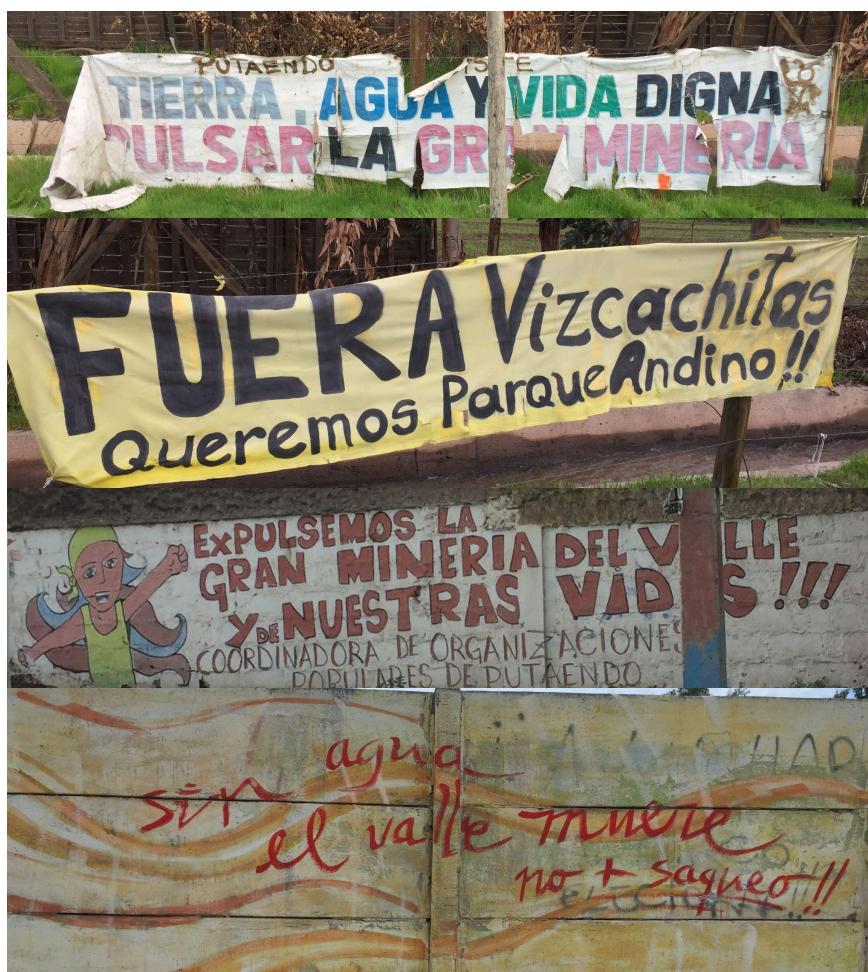 PUTAENDO
TIERRA, AGUA Y VIDA DIGNA
PULSAR LA GRAN MINERIA
FUERA Vizcachitas
Queremos Parque Andino!!
EXPULSEMOS LA
GRAN MINERIA DEL VALLE
Y DE NUESTRAS VIDAS!!!
COORDINADORA DE ORGANIZACIONES
POPULARES DE PUTAENDO
sin agua
el valle muere
no + saqueo!!